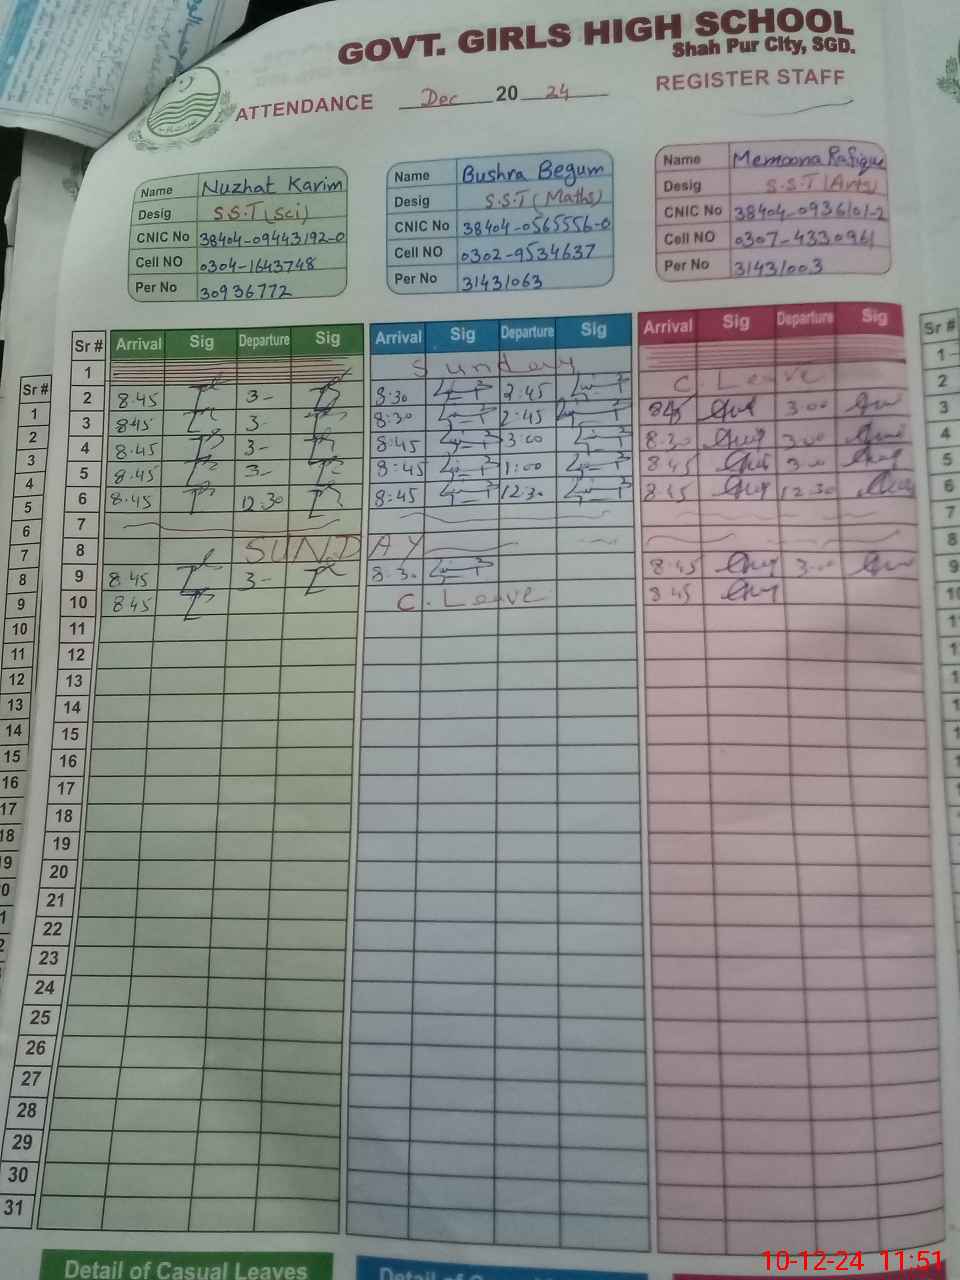 GOVT. GIRLS HIGH SCHOOL
Shah Pur City, SGD.
ATTENDANCE Dec 20 24 REGISTER STAFF
Name Nuzhat Karim
Desig S.S.T (Sci)
CNIC No 38404-09443192-0
Cell NO 0304-1643748
Per No 30936772
Name Bushra Begum
Desig S.S.T (Maths)
CNIC No 38404-0565556-0
Cell NO 0302-9534637
Per No 31431063
Name Memoona Rafique
Desig S.S.T (Arts)
CNIC No 38404-0936101-2
Cell NO 0307-4330961
Per No 31431003
Sr # Arrival Sig Departure Sig Arrival Sig Departure Sig Arrival Sig Departure Sig Sr #
1 Sunday
2 8.45 3- 8:30 2:45 C. Leave
3 8.45 3- 8:30 2:45 8.45 3.00
4 8.45 3- 8:45 3:00 8.30 3.00
5 8.45 3- 8:45 1:00 8.45 3.00
6 8.45 12.30 8:45 12.30 8.45 12.30
7
8 SUNDAY
9 8.45 3- 8.30 8.45 3.00
10 8.45 C. Leave 8.45
11
12
13
14
15
16
17
18
19
20
21
22
23
24
25
26
27
28
29
30
31
Detail of Casual Leaves
10-12-24 11:51